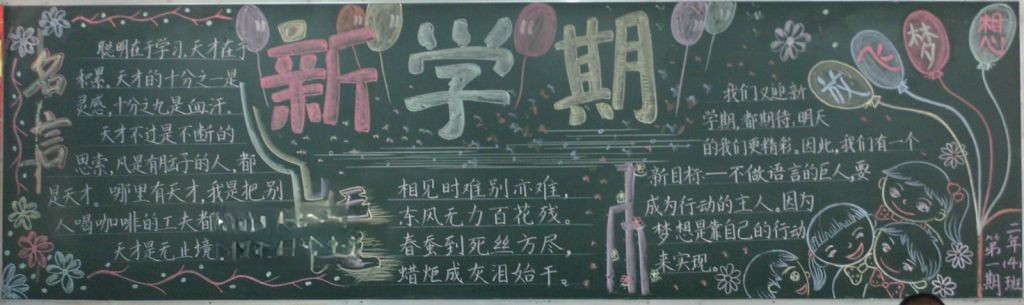 新学期
名言
聪明在于学习,天才在于
积累。天才的十分之一是
灵感,十分之九是血汗。
天才不过是不断的
思索,凡是有脑子的人,都
是天才。哪里有天才,我是把别
人喝咖啡的工夫都
天才是无止境
相见时难别亦难,
东风无力百花残。
春蚕到死丝方尽,
蜡炬成灰泪始干。
我们又迎新
学期,都期待,明天
的我们更精彩。因此,我们有一个
新目标一不做语言的巨人,要
成为行动的主人。因为
梦想是靠自己的行动
来实现。
放飞梦想
二年(4)班
第一期